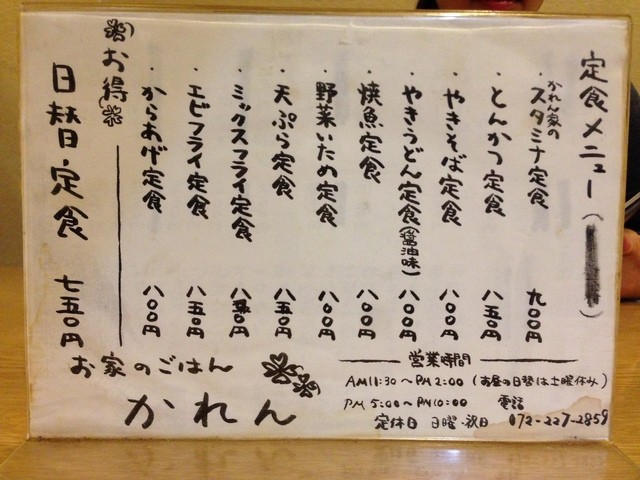 定食メニュー（　　）
・かれん家のスタミナ定食 九〇〇円
・とんかつ定食 八五〇円
・やきそば定食 八〇〇円
・やきうどん定食(醤油味) 八〇〇円
・焼魚定食 八〇〇円
・野菜いため定食 八〇〇円
・天ぷら定食 八五〇円
・ミックスフライ定食 八五〇円
・エビフライ定食 八五〇円
・からあげ定食 八〇〇円
お得
日替定食 七五〇円
お家のごはん
かれん
営業時間
AM11:30～PM2:00（お昼の日替は土曜休み）
PM5:00～PM10:00
定休日 日曜・祝日
電話
072-227-2859